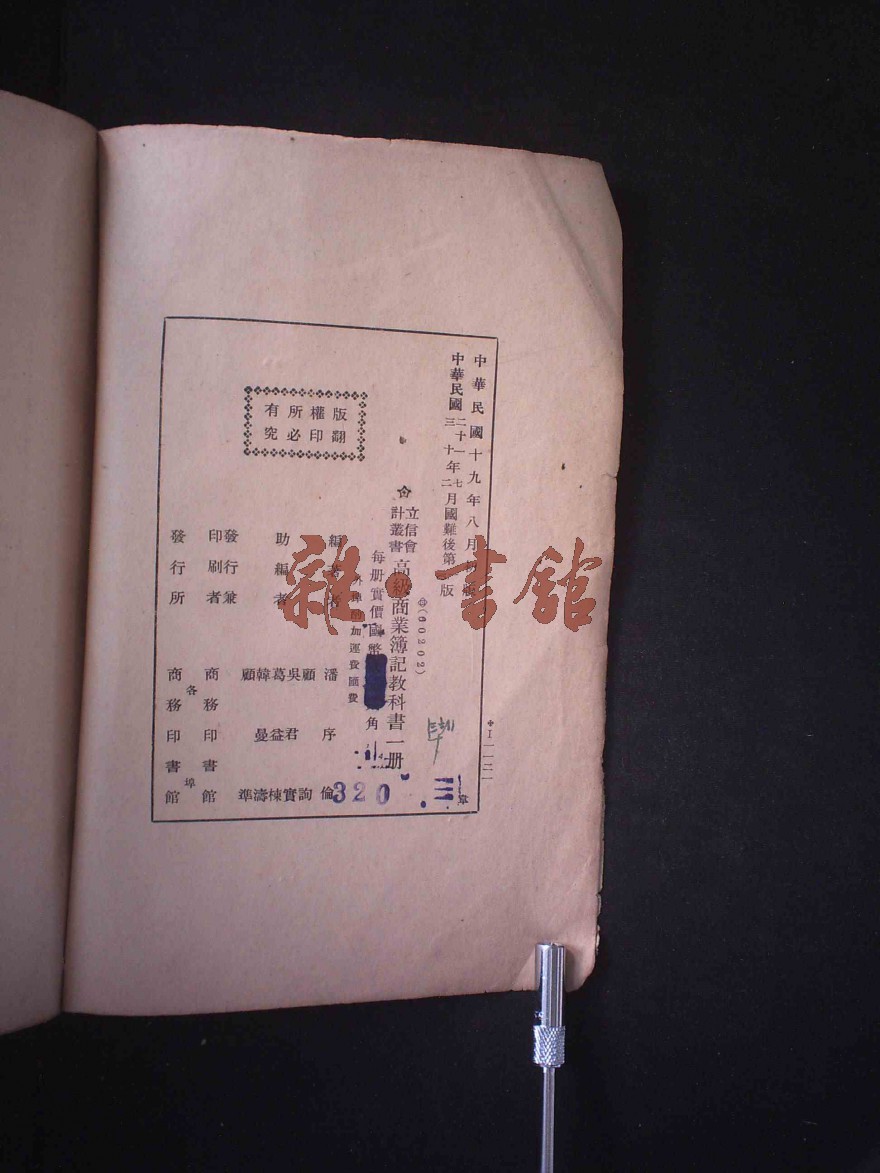 中華民國十九年八月初版
中華民國二十一年七月國難後第
三十年二月
版
(60202)
立信會
計叢書
高級商業簿記教科書一册
每册實價國幣
角
外埠酌加運費匯費
版權所有
翻印必究
編著者 潘序倫
助編者 顧詢 吳君實 葛益棟 韓濤 顧曼準
發行兼
印刷者 商務印書館
發行所 商務印書館
各埠
320
雜·書館